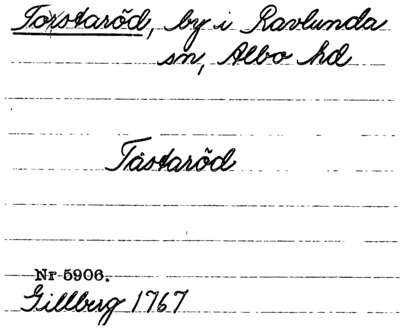 Torstaröd, by i Ravlunda
sn, Albo hd
Tåstaröd
Nr 5906.
Gillberg 1767